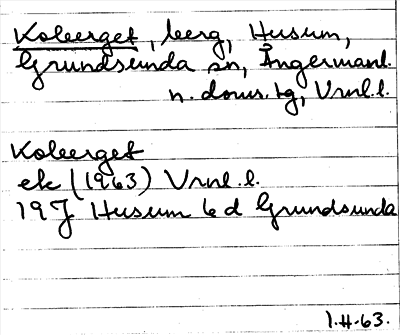 Koberget, berg, Husum,
Grundsunda sn, Ångermanl.
n. doms. tg, Vrnl. l.
Koberget
ek (1963) Vrnl. l.
19J Husum 6 d Grundsunda
1.H-63.